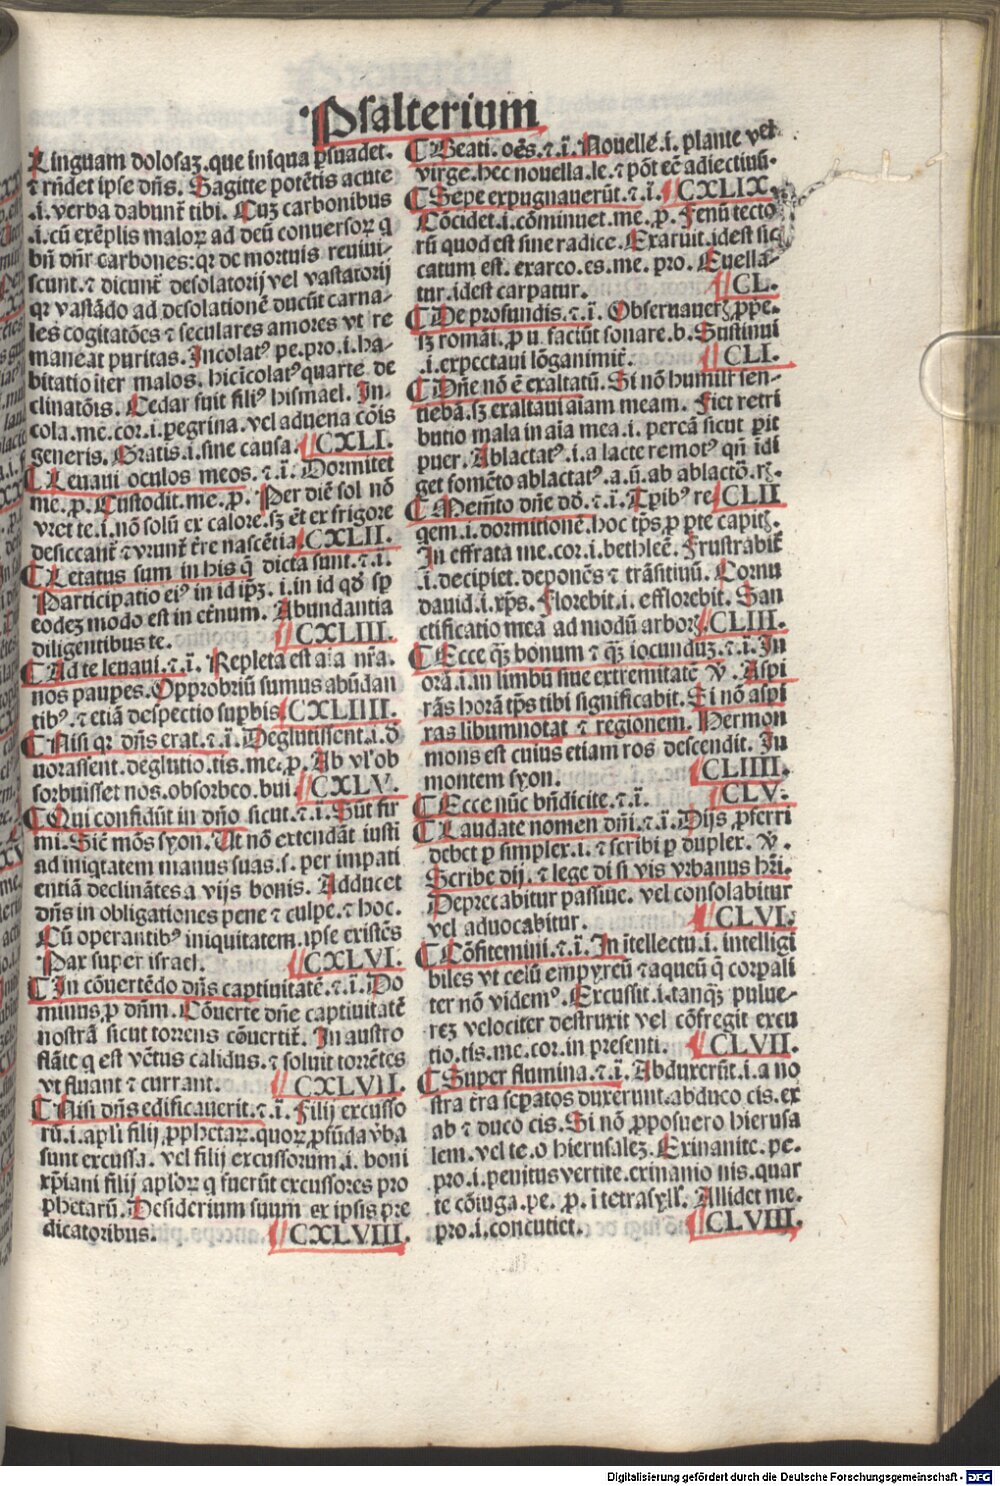 Psalterium
Linguam dolosaʒ.que iniqua ꝑsuadet.
⁊ rñdet ipse dñs. Sagitte potẽtis acute
.i.verba dabunt̃ tibi. Cuʒ carbonibus
.i.cũ exẽplis maloꝝ ad deũ conuersoꝝ q
bñ dñr carbones:qr de mortuis reuiui-
scunt.⁊ dicunt̃ desolatorij vel vastatorij
qr vastãdo ad desolationẽ ducũt carna-
les cogitatões ⁊ seculares amores vt re
maneat puritas. Incolatꝰ pe.pro.i.ha-
bitatio iter malos. hicĩcolatꝰ quarte de
clinatõis. Cedar fuit filiꝰ hismael. In-
cola.me.cor.i.peregrina.vel aduena cõis
generis. Gratis.i.sine causa. CXLI.
Leuaui oculos meos.⁊.ĩ. Dormitet
me.ꝓ. Custodit.me.ꝓ. Per diẽ sol nõ
vret te.i.nõ solũ ex calore.sʒ ẽt ex frigore
desiccant̃ ⁊ vrunt̃ t̃re nascẽtia. CXLII.
Letatus sum in his q̃ dicta sunt.⁊.i.
Participatio eiꝰ in id ipʒ̃.i.in id qõ sp̃
eodeʒ modo est in etẽnum. Abundantia
diligentibus te. CXLIII.
Ad te leuaui.⁊.ĩ. Repleta est aĩa nr̃a.
nos paupes. Opprobriũ sumus abũdan
tibꝰ.⁊ etiã despectio suꝑbis CXLIIII.
Nisi qr dñs erat.⁊.ĩ. Deglutissent.i.d
uorassent.deglutio.tis.me.ꝓ. Ab vl̓ ob
sorbuisset nos.obsorbeo.bui. CXLV.
Qui confidũt in dño sicut.⁊.ĩ. Sũt fir
mi. Sic̃ mõs syon. Ut nõ extendãt iusti
ad iniqtatem manus suas.s.per impati
entiã declinãtes a vijs bonis. Adducet
dñs in obligationes pene ⁊ culpe.⁊ hoc.
Cũ operantibꝰ iniquitatem.ipse existẽs
Pax super israel. CXLVI.
In cõuertẽdo dñs captiuitatẽ.⁊.ĩ. Do
minus.ꝓ dñm. Cõuerte dñe captiuitatẽ
nostrã sicut torrens cõuertit̃. In austro
flãte q est vẽtus calidus.⁊ soluit torrẽtes
vt fluant ⁊ currant. CXLVII.
Nisi dñs edificauerit.⁊.ĩ. Filij excusso
rũ.i.apl̃i filij ꝓphetaꝝ.quoꝝ ꝓfũda v̓ba
sunt excussa. vel filij excussorum.i.boni
xp̃iani filij apl̃oꝝ q fuerũt excussores pro
phetarũ. Desiderium suum ex ipsis pre
dicatoribus. CXLVIII.
Beati.oẽs.⁊.ĩ. Nouelle.i.plante vel
virge.hec nouella.le.⁊ põt eẽ adiectiuũ.
Sepe expugnauerũt.⁊.ĩ. CXLIX.
Cõcidet.i.cõminuet.me.ꝓ. Fenũ tecto
rũ quod est sine radice. Exaruit.idest sic
catum est.exarco.es.me.pro. Euella-
tur.idest carpatur. CL.
De profundis.⁊.ĩ. Obseruaueris ꝓpe.
sʒ romãi.ꝓ u faciũt sonare.b. Sustinui
.i.expectaui lõganimit̃. CLI.
Dñe nõ ẽ exaltatũ. Si nõ humilr̃ sen-
tiebã.sʒ exaltaui aĩam meam. Fiet retri
butio mala in aĩa mea.i.pereã sicut ꝑit
puer. Ablactatꝰ.i.a lacte remotꝰ qñ ĩdi
get fomẽto ablactatꝰ.a.ũ.ab ablacto.
Memẽto dñe dd.⁊.ĩ. Tp̃ibꝰ re CLII
qem.i.dormitionẽ.hoc tp̃s ꝓ ꝑte capit̃.
In effrata me.cor.i.bethleẽ. Frustrabit̃
.i.decipiet.deponẽs ⁊ trãsitiuũ. Cornu
dauid.i.xp̃s. Florebit.i.efflorebit. San
ctificatio mea ad modũ arboꝝ. CLIII.
Ecce qʒ̃ bonum ⁊ qʒ̃ iocunduʒ.⁊.ĩ. In
ora.i.in limbũ siue extremitatẽ v̓. Aspi
rãs horã tp̃s tibi significabit. Si nõ aspi
ras libumnotat ⁊ regionem. Hermon
mons est cuius etiam ros descendit. In
montem syon. CLIIII.
Ecce nũc bñdicite.⁊.ĩ. CLV.
Laudate nomen dñi.⁊.ĩ. Dijs ꝓferri
debet ꝑ simplex.i.⁊ scribi ꝑ duplex. v̓.
Scribe dij.⁊ lege di si vis vrbanus hr̃i.
Deprecabitur passiue. vel consolabitur
vel aduocabitur. CLVI.
Cõfitemini.⁊.ĩ. In ĩtellectu.i. intelligi
biles vt celũ empyreũ ⁊ aqueũ q̃ corpali
ter nõ videmꝰ. Excussit.i.tanqʒ̃ pulue-
reʒ velociter destruxit vel cõfregit excu
tio.tis.me.cor.in presenti. CLVII.
Super flumina.⁊.ĩ. Abduxerũt.i.a no
stra t̃ra seꝑatos duxerunt.abduco cis.ex
ab ⁊ duco cis. Si nõ ꝓposuero hierusa
lem.vel te.o hierusaleʒ. Exinanite.pe.
pro.i.penitus vertite.exinanio nis.quar
te cõiuga.pe.ꝓ.ĩ tetrasyll̃. Allidet me.
pro.i.concutiet. CLVIII.
Digitalisierung gefördert durch die Deutsche Forschungsgemeinschaft - DFG